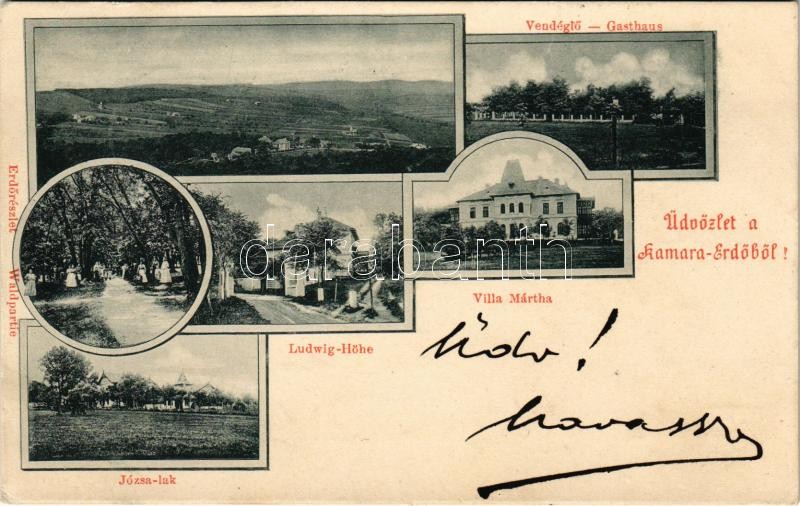 Vendéglő — Gasthaus
Erdőrészlet Waldpartie
Üdvözlet a
Kamara-Erdőből!
darabanth
Villa Mártha
Ludwig-Höhe
Üdv!
Józsa-lak